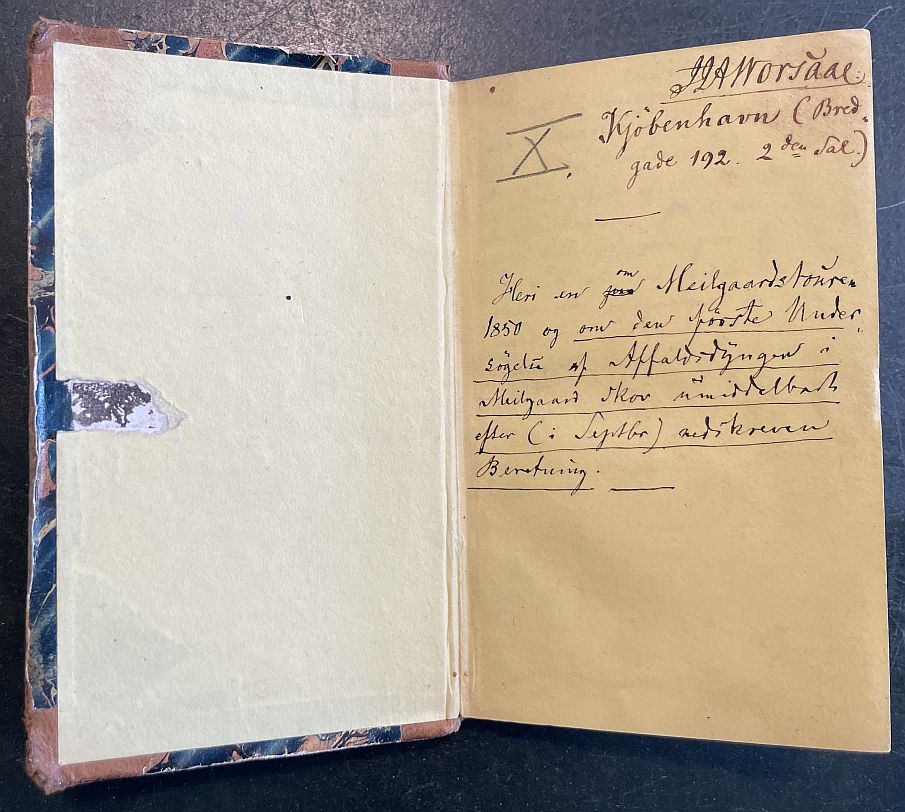 JJAWorsaae.
X.
Kjöbenhavn (Bred-
gade 192. 2den Sal.)
om
Heri en Meilgaardstouren
1850 og om den första Under-
sögelse af Affaldsdyngen i
Meilgaard Skov umiddelbart
efter (i Septbr) nedskreven
Beretning.